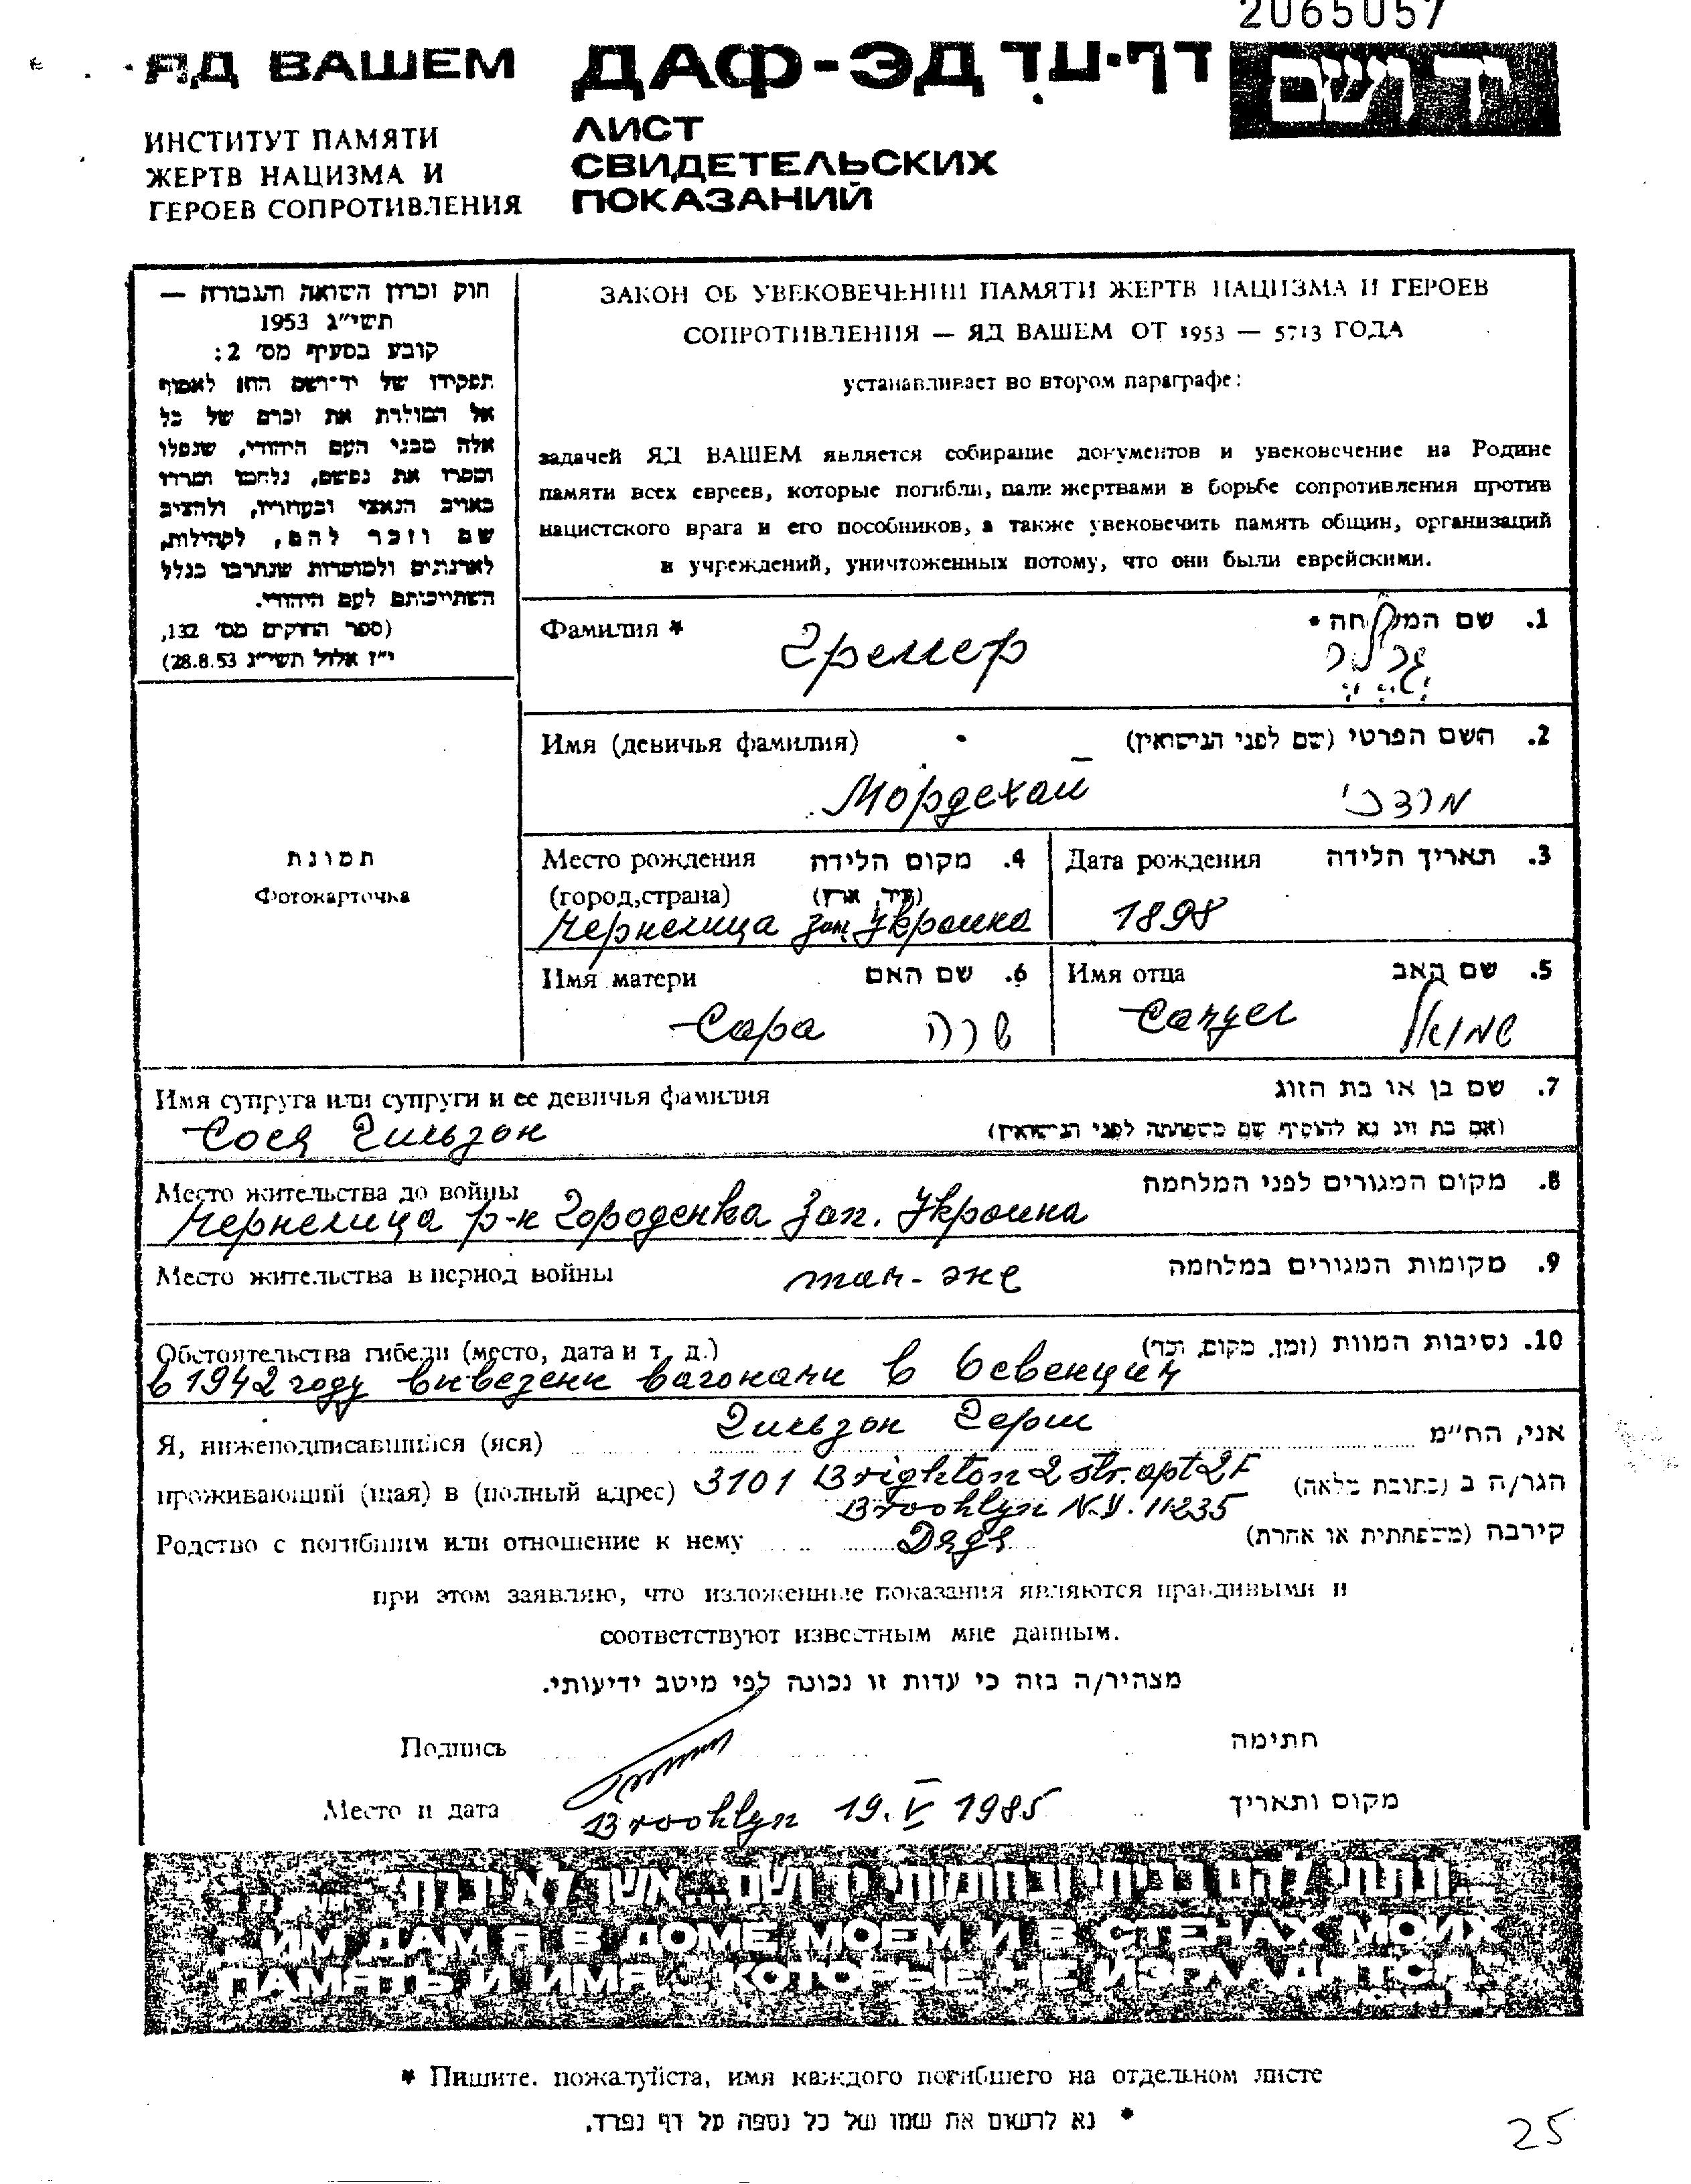 2065057
ЯД ВАШЕМ
ИНСТИТУТ ПАМЯТИ
ЖЕРТВ НАЦИЗМА И
ГЕРОЕВ СОПРОТИВЛЕНИЯ
ДАФ-ЭД דף-עד
ЛИСТ
СВИДЕТЕЛЬСКИХ
ПОКАЗАНИЙ
יד ושם
חוק זכרון השואה והגבורה —
תשי״ג 1953
קובע בסעיף מס׳ 2:
תפקידו של יד־ושם הוא לאסוף
אל המולדת את זכרם של כל
אלה מבני העם היהודי, שנפלו
ומסרו את נפשם, נלחמו ומרדו
באויב הנאצי ובעוזריו, ולהציב
שם וזכר להם, לקהילות,
לארגונים ולמוסדות שנחרבו בגלל
השתייכותם לעם היהודי.
(ספר החוקים מס׳ 132,
י״ז אלול תשי״ג 28.8.53)
ЗАКОН ОБ УВЕКОВЕЧЕНИИ ПАМЯТИ ЖЕРТВ НАЦИЗМА И ГЕРОЕВ
СОПРОТИВЛЕНИЯ — ЯД ВАШЕМ ОТ 1953 — 5713 ГОДА
устанавливает во втором параграфе:
задачей ЯД ВАШЕМ является собирание документов и увековечение на Родине
памяти всех евреев, которые погибли, пали жертвами в борьбе сопротивления против
нацистского врага и его пособников, а также увековечить память общин, организаций
и учреждений, уничтоженных потому, что они были еврейскими.
Фамилия * 1. שם המשפחה *
Мордехай מרדכי
Имя (девичья фамилия) 2. השם הפרטי (שם לפני הנישואין)
תמונת
Фотокарточка
Место рождения 4. מקום הלידה
(город,страна) (עיר, ארץ)
Чернелица Зап. Украина
Дата рождения 3. תאריך הלידה
1898
Имя матери 6. שם האם
Сара שרה
Имя отца 5. שם האב
שמואל
Имя супруга или супруги и ее девичья фамилия 7. שם בן או בת הזוג
(אם בת זוג נא להוסיף שם משפחתה לפני הנישואין)
Сося Гильзон
Место жительства до войны 8. מקום המגורים לפני המלחמה
Чернелица р-н Городенка Зап. Украина
Место жительства в период войны 9. מקומות המגורים במלחמה
там-же
Обстоятельства гибели (место, дата и т. д.) 10. נסיבות המוות (זמן, מקום, וכו׳)
в 1942 году вывезени вагонами в Освенцим
Я, нижеподписавшийся (яся) Гильзон Герш אני, הח״מ
проживающий (щая) в (полный адрес) 3101 Brighton 2 str. apt 2F הגר/ה ב (כתובת מלאה)
Brooklyn N.Y. 11235
Родство с погибшим или отношение к нему Дядя קירבה (משפחתית או אחרת)
при этом заявляю, что изложенные показания являются правдивыми и
соответствуют известным мне данным.
מצהיר/ה בזה כי עדות זו נכונה לפי מיטב ידיעותי.
Подпись חתימה
Место и дата Brooklyn 19. V 1985 מקום ותאריך
ונתתי להם בביתי ובחומותי יד ושם...אשר לא יכרת
...ИМ ДАМ Я В ДОМЕ МОЕМ И В СТЕНАХ МОИХ
ПАМЯТЬ И ИМЯ... КОТОРЫЕ НЕ ИЗГЛАДЯТСЯ.
* Пишите, пожалуйста, имя каждого погибшего на отдельном листе
* נא לרשום את שמו של כל נספה על דף נפרד.
25